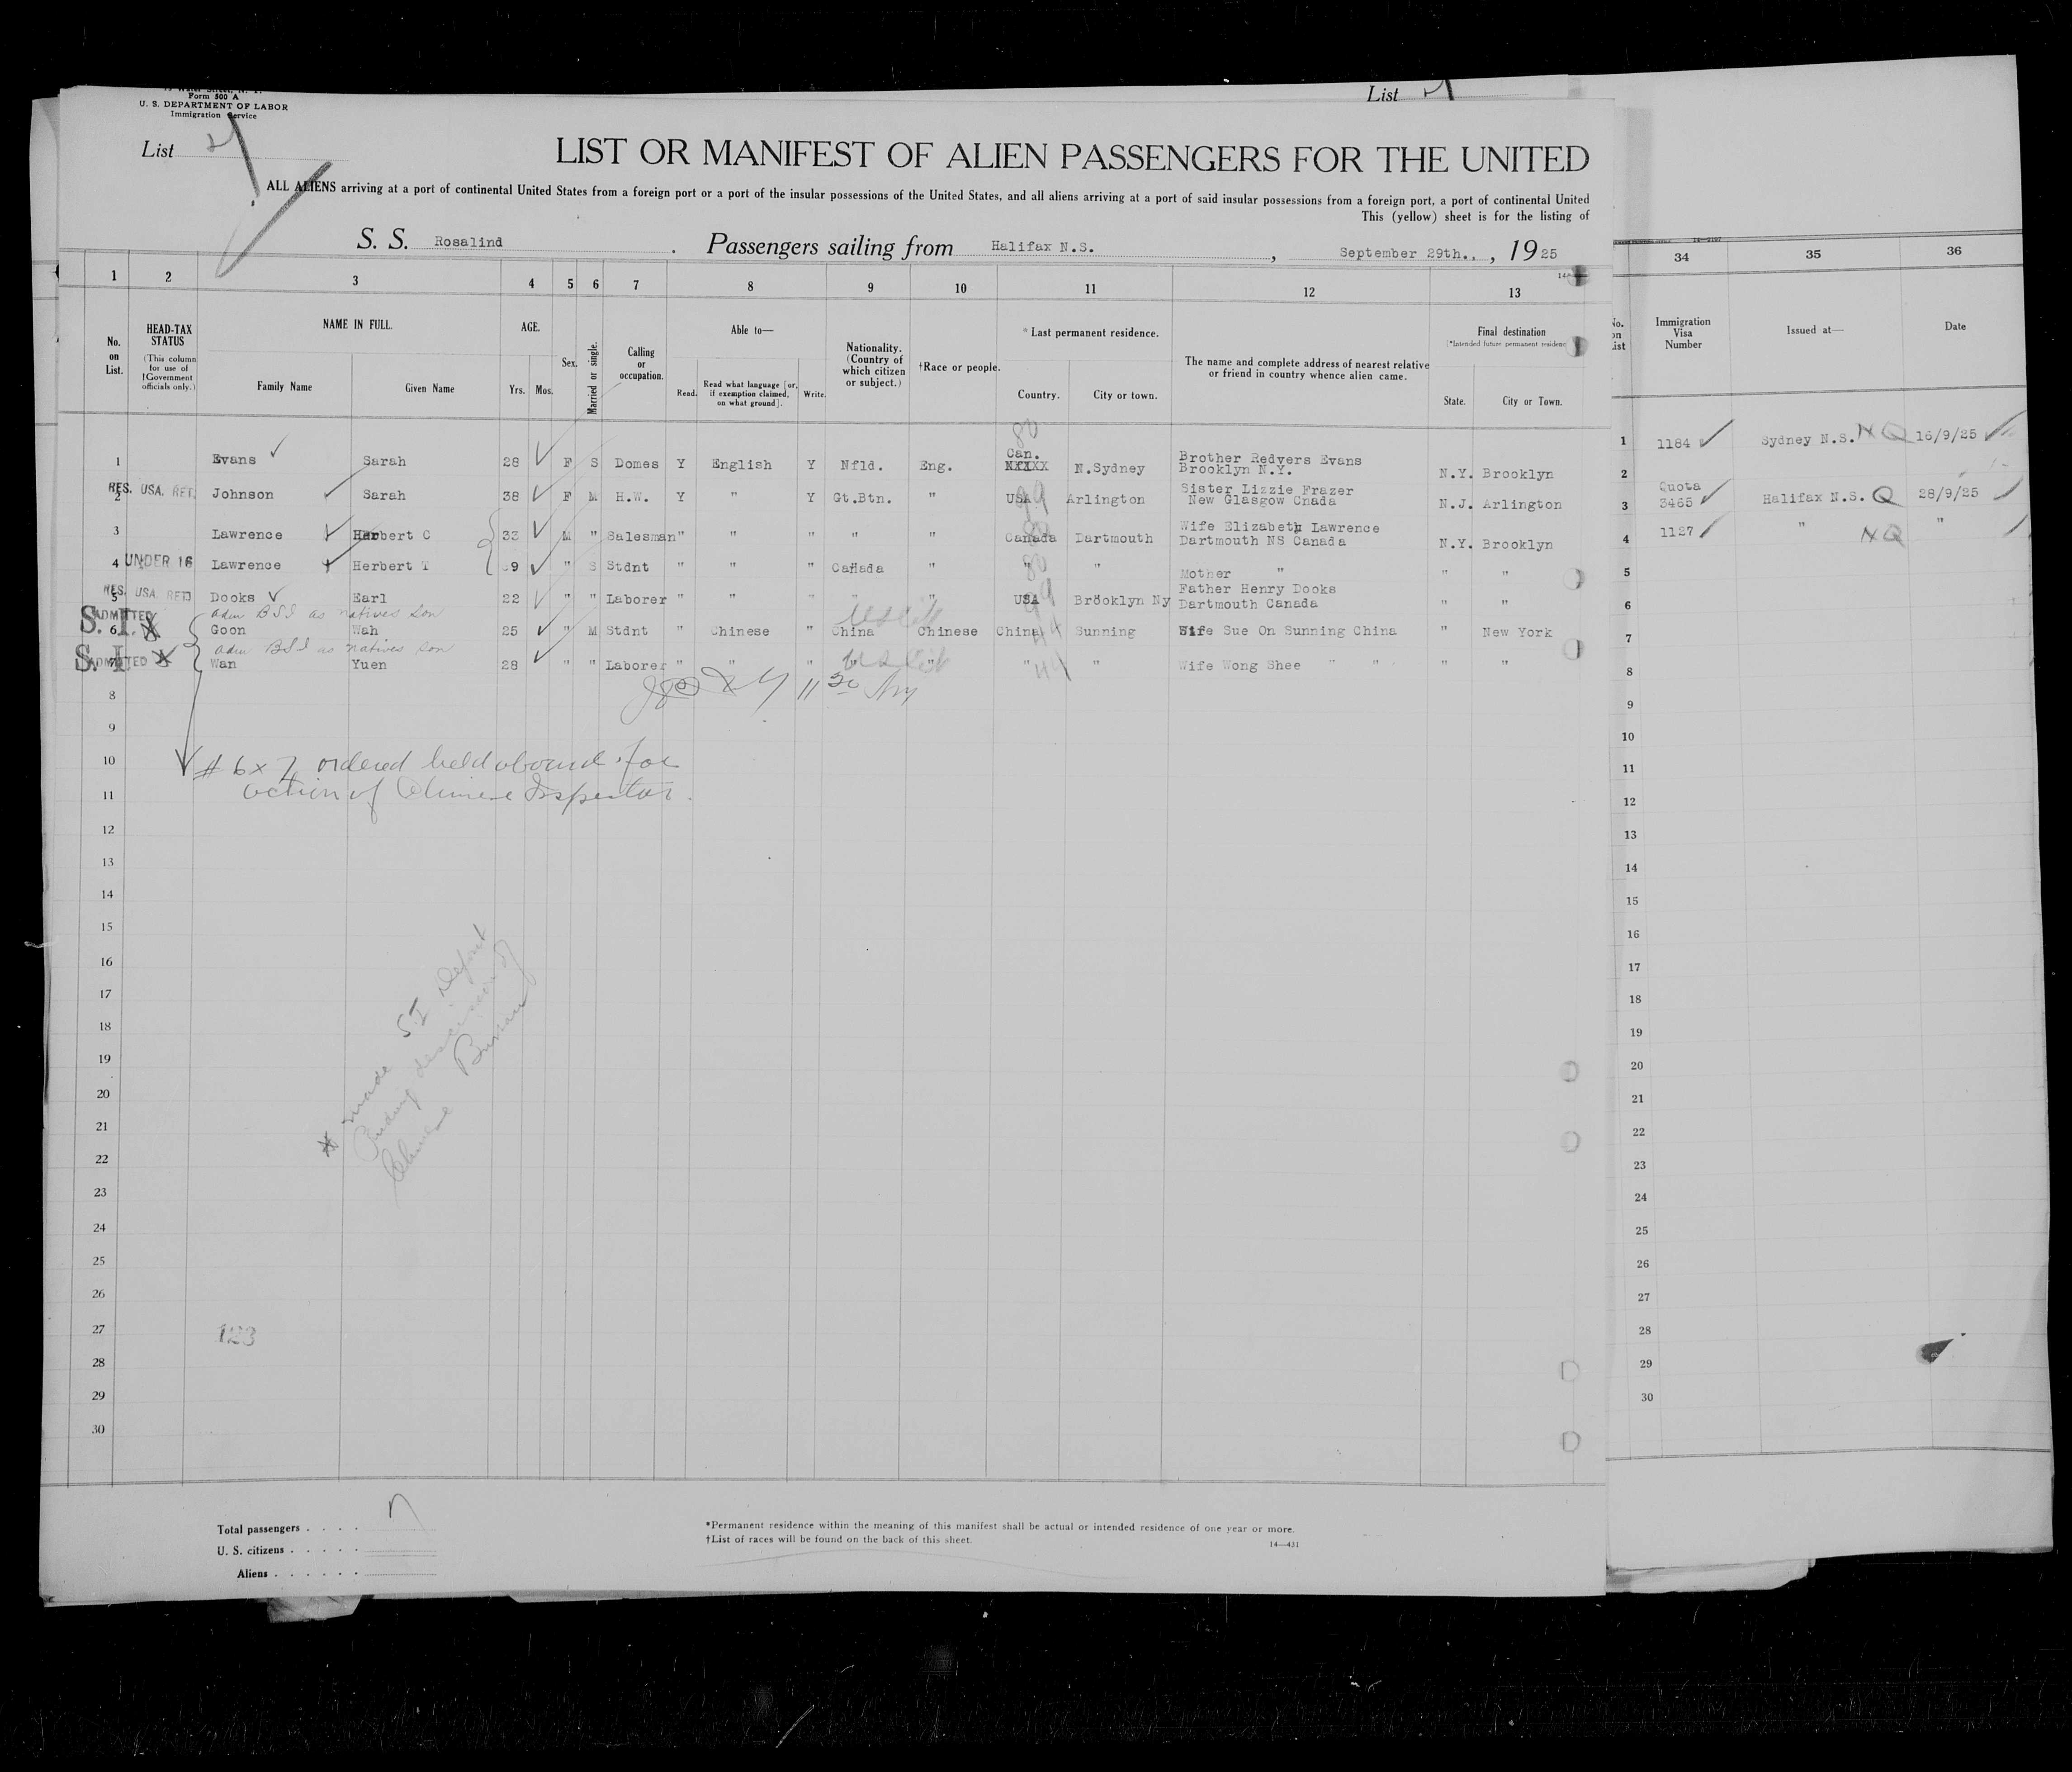 Form 500 A
U. S. DEPARTMENT OF LABOR
Immigration Service
List 2
List
LIST OR MANIFEST OF ALIEN PASSENGERS FOR THE UNITED
ALL ALIENS arriving at a port of continental United States from a foreign port or a port of the insular possessions of the United States, and all aliens arriving at a port of said insular possessions from a foreign port, a port of continental United
This (yellow) sheet is for the listing of
S. S. Rosalind. Passengers sailing from Halifax N.S., September 29th., 1925
1 2 3 4 5 6 7 8 9 10 11 12 13 34 35 36
No. on List. HEAD-TAX STATUS (This column for use of †Government officials only.) NAME IN FULL. Family Name Given Name AGE. Yrs. Mos. Sex. Married or single. Calling or occupation. Able to— Read. Read what language [or, if exemption claimed, on what ground]. Write. Nationality. (Country of which citizen or subject.) †Race or people. *Last permanent residence. Country. City or town. The name and complete address of nearest relative or friend in country whence alien came. Final destination (*Intended future permanent residence) State. City or Town.
No. on List Immigration Visa Number Issued at— Date
1 Evans Sarah 28 F S Domes Y English Y Nfld. Eng. 80 Can. N.Sydney Brother Redvers Evans Brooklyn N.Y. N.Y. Brooklyn
1184 Sydney N.S. NQ 16/9/25
2 RES. USA. RET. Johnson Sarah 38 F M H.W. Y " Y Gt.Btn. " USA 99 Arlington Sister Lizzie Frazer New Glasgow Cnada N.J. Arlington
Quota 3465 Halifax N.S. Q 28/9/25
3 Lawrence Herbert C 33 M " Salesman " " " " " 80 Canada Dartmouth Wife Elizabeth Lawrence Dartmouth NS Canada N.Y. Brooklyn
1127 " NQ "
4 UNDER 16 Lawrence Herbert T 9 " S Stdnt " " " Canada " 80 " " Mother " " "
5 RES. USA RET Dooks Earl 22 " " Laborer " " " " " USA 99 Brooklyn Ny Father Henry Dooks Dartmouth Canada " "
adm BSI as natives son
6 ADMITTED S.I. Goon Wah 25 " M Stdnt " Chinese " China Chinese China 44 Sunning Wife Sue On Sunning China " New York
adm BSI as natives son
7 ADMITTED S.I. Wan Yuen 28 " " Laborer " " " " " " 44 " Wife Wong Shee " " " "
8
9
10 # 6 x 7 ordered held aboard for
11 action of Chinese Inspector.
12
13
14
15
16
17
18
19
20
21
22
23
24
25
26
27
28
29
30
made S.I. Depart
Pending decision of
Chinese Bureau
123
1
2
3
4
5
6
7
8
9
10
11
12
13
14
15
16
17
18
19
20
21
22
23
24
25
26
27
28
29
30
Total passengers . . . . 7
U. S. citizens . . . . .
Aliens . . . . . .
*Permanent residence within the meaning of this manifest shall be actual or intended residence of one year or more.
†List of races will be found on the back of this sheet.
14—431